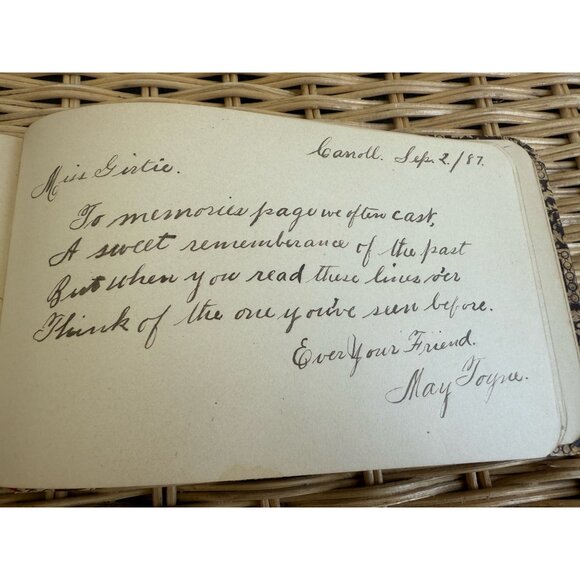 Carroll. Sep. 2/87.
Miss Girtie.
To memories page we often cast,
A sweet rememberance of the past
But when you read these lines o'er
Think of the one you've seen before.
Ever Your Friend.
May Toyne.